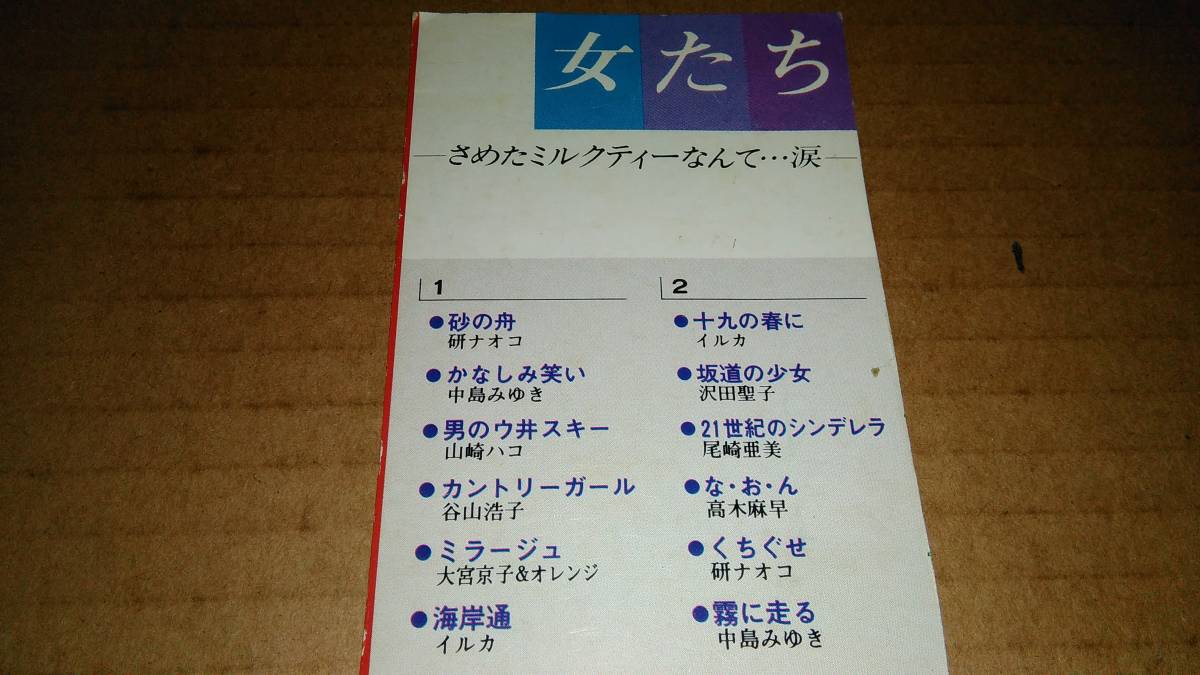 女たち
―さめたミルクティーなんて…涙―
1
●砂の舟
研ナオコ
●かなしみ笑い
中島みゆき
●男のウ井スキー
山崎ハコ
●カントリーガール
谷山浩子
●ミラージュ
大宮京子&オレンジ
●海岸通
イルカ
2
●十九の春に
イルカ
●坂道の少女
沢田聖子
●21世紀のシンデレラ
尾崎亜美
●な・お・ん
高木麻早
●くちぐせ
研ナオコ
●霧に走る
中島みゆき